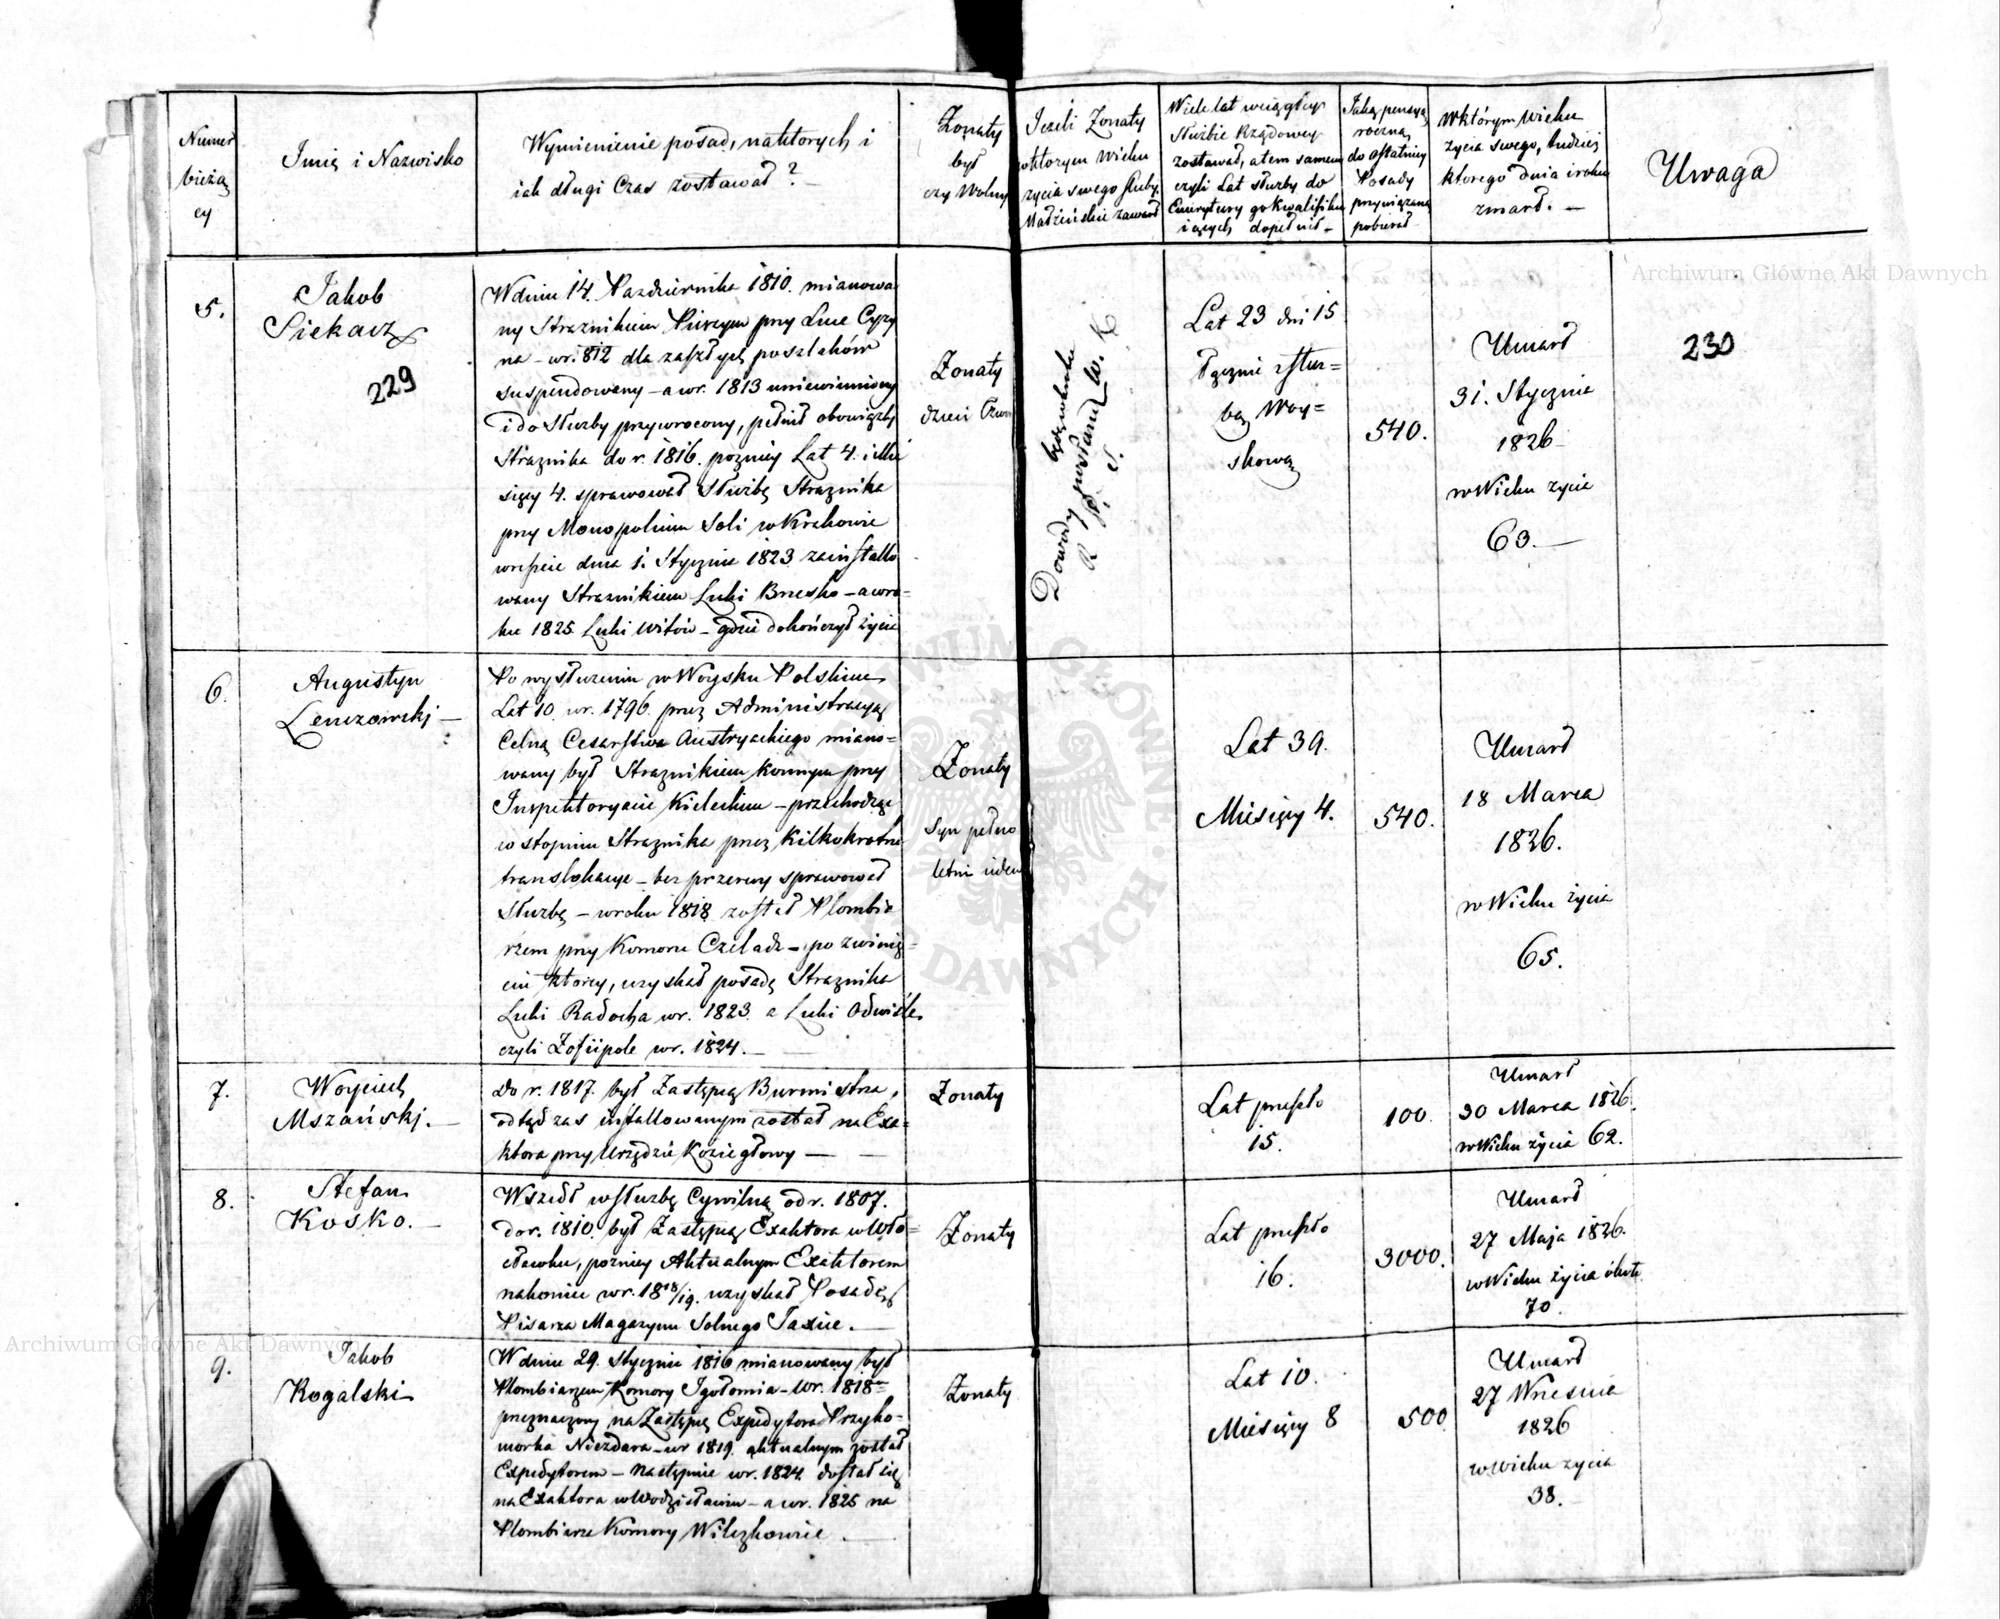 Numer
bieżą
cy
Imię i Nazwisko
Wymienienie posad, na których i
iak długi Czas zostawał? —
Żonaty
był
czy Wolny
Jeżeli Żonaty
w którym wieku
życia swego śluby
Małżeńskie zawarł
Wiele lat w ciągłey
Służbie Rządowey
zostawał, a tem samem
czyli Lat służby do
Emerytury go kwalifiku
iących dopełnił —
Jaką pensyą
roczną
do ostatniey
Posady
przywiązaną
pobierał
W którym wieku
życia swego, tudzież
którego dnia i roku
zmarł. —
Uwaga
5.
Jakob
Siekacz
229
W dniu 14. Października 1810. mianowa
ny Strażnikiem Pieszym przy Linie Cyzy
na — w r. 812 dla zaszłych poszlaków
suspendowany — a w r. 1813 uniewinniony
i do Służby przywrócony, pełnił obowiązki
Strażnika do r. 1816. pozniey Lat 4. i Mie
sięcy 4. sprawował Służbę Strażnika
przy Monopolium Soli w Krakowie
wreszcie dnia 1. Stycznia 1823 zainstallo
wany Strażnikiem Luki Brzesko — a w ro=
ku 1825 Luki Witów — gdzie dokończył życia
Żonaty
dzieci
Dowody
R. P. i S. W. K
Lat 23 dni 15
Łącznie z Słuz=
bą Woy=
skową
540.
Umarł
31. Stycznia
1826
w Wieku życia
63. —
230
6.
Augustyn
Lenczowski —
Po wysłużeniu w Woysku Polskiem
Lat 10. w r. 1796. przez Administracyą
Celną Cesarstwa Austryackiego miano=
wany był Strażnikiem konnym przy
Inspektoryacie Kieleckim — przechodząc
w stopniu Strażnika przez kilkokrotne
translokacye — bez przerwy sprawował
Służbę — w roku 1818 został Plombie
rzem przy Komorze Czeladz — po zwinię=
ciu ktorey, uzyskał posadę Strażnika
Luki Radocha w r. 1823. a Luki Odwiśle
czyli Zofiipole w r. 1824. —
Żonaty
Syn pełno
letni ieden
Lat 39.
Miesięcy 4.
540.
Umarł
18 Marca
1826.
w Wieku życia
65.
7.
Woyciech
Mszański. —
Do r. 1817. był Zastępcą Burmistrza,
odtąd zas installowanym został na Exa=
ktora przy Urzędzie Koziegłowy —
Żonaty
Lat przeszło
15.
100.
Umarł
30 Marca 1826.
w Wieku życia 62.
8.
Stefan
Kosko. —
Wszedł w służbę Cywilną od r. 1807.
do r. 1810. był Zastępcą Exaktora w Wło=
cławku, pozniey Aktualnym Exaktorem
nakoniec w r. 1818/19. uzyskał Posadę
Pisarza Magazynu Solnego Tasiie. —
Żonaty
Lat przeszło
16.
3000.
Umarł
27 Maja 1826.
w Wieku życia około
70.
9.
Jakob
Rogalski
W dniu 29. Stycznia 1816 mianowany był
Plombiarzem Komory Igołomia — w r. 1818
przeznaczony na Zastępcę Expedytora Przyko=
morka Niezdara — w r 1819. aktualnym został
Expedytorem — następnie w r. 1824. dostał się
na Exaktora w Wodzisławiu — a w r. 1825 na
Plombiarza Komory Wilczkowice. —
Żonaty
Lat 10.
Miesięcy 8
500
Umarł
27 Wrzesnia
1826
w wieku życia
38. —
Archiwum Główne Akt Dawnych
Archiwum Główne Akt Dawnych
ARCHIWUM GŁÓWNE AKT DAWNYCH